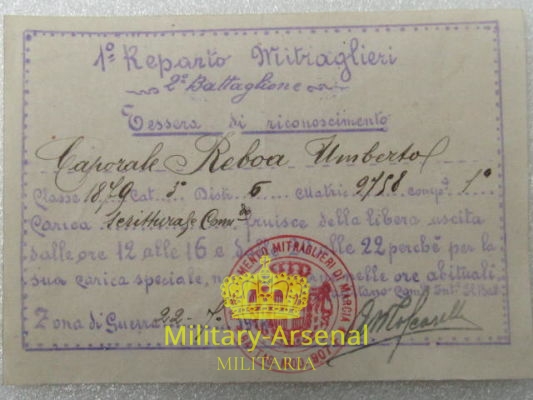 1º Reparto Mitraglieri
2º Battaglione
Tessera di riconoscimento
Caporale Reboa Umberto
Classe 1879 Cat. 3ª Dist. 6 Matric. 2758 comp. 1ª
Carica Scritturale Com.do fruisce della libera uscita
dalle ore 12 alle 16 e alle 22 perchè per la
sua carica speciale, nelle ore abituali
Zona di Guerra 22-7-
MITRAGLIERI DI MARCIA
Military-Arsenal
MILITARIA